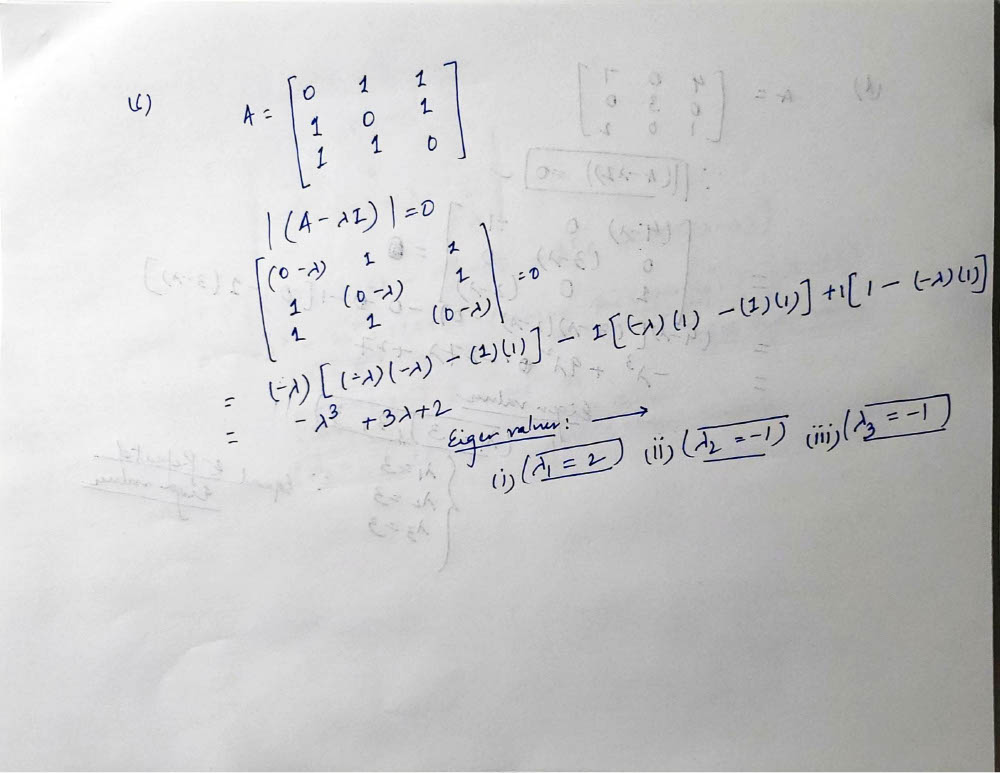 (c) A = [ 0 1 1
1 0 1
1 1 0 ]
|(A-λI)| = 0
[ (0-λ) 1 1
1 (0-λ) 1
1 1 (0-λ) | = 0
= (-λ) [(-λ)(-λ) - (1)(1)] - 1[(-λ)(1) - (1)(1)] + 1[1 - (-λ)(1)]
= -λ³ + 3λ + 2
Eigen values: →
(i) (λ₁ = 2) (ii) (λ₂ = -1) (iii) (λ₃ = -1)